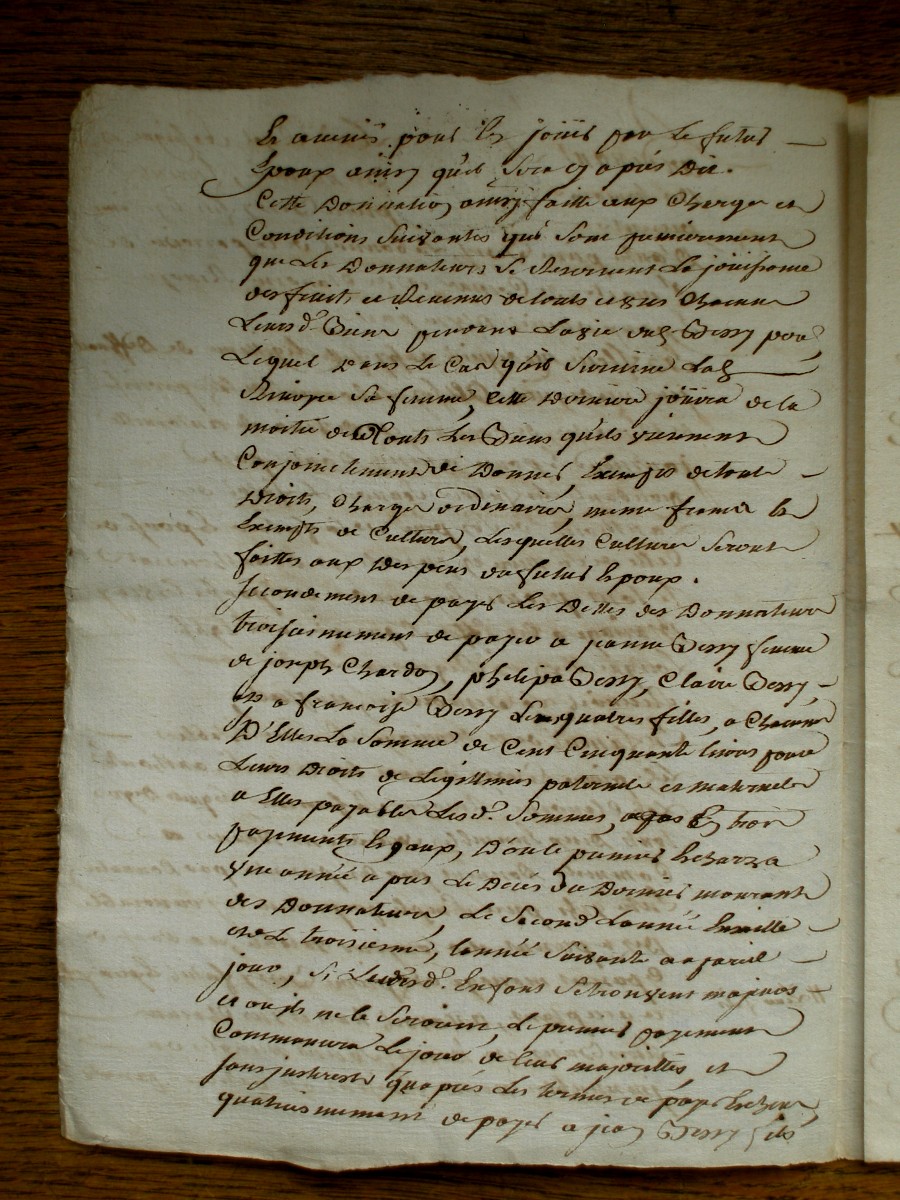 Et avenir pour En jouir par Le futur
Epoux ainsy qu'il Sera cy apres Dit.
Cette Donnation ainsy faitte aux Charges et
Conditions Suivantes qui sont premierement
que Les Donnateurs Se Reservent La jouissance
des fruits et Revenus de touts et uns Chacuns
Leurs d. Biens pendant La vie dud. Bessy pere,
Lequel dans Le Cas qu'il Survive Lad.
sa femme, Cette Derniere jouira de la
moitié de touts Les Biens qu'ils viennent
Conjointement de Donner, Exempts de touts
Droits, Charges ordinaires, meme francs Et
Exempts de Cultures, Lesquelles Cultures Seront
faittes aux Despens du futur Epoux.
Secondement de payer Les Dettes des Donnateurs
troisiemement de payer a jeanne Bessy femme
de joseph Chardon, philipa Bessy, Claire Bessy,
et a francoise Bessy Leurs quatres filles, a Chacune
D'Elles La Somme de Cent Cinquante livres pour
Leurs Droits de Legittimes paternels et maternels
a Elles payables Lesd. Sommes, En trois
payements Egaux, Dont le premier Echerra
Une année apres Le Décés du Dernier mourant
des Donnateurs, Le Second L'année
et Le troisieme, L'année Suivante a pareil
jour, Si Leursd. Enfans Se trouvent majeurs
et ou ils ne le Seroient, Le premier payement
Commencera Le jour de leur majorittés, et
Sans interests qu'apres Les termes de payer Echeus,
quatriemement de payer a jean Bessy fils